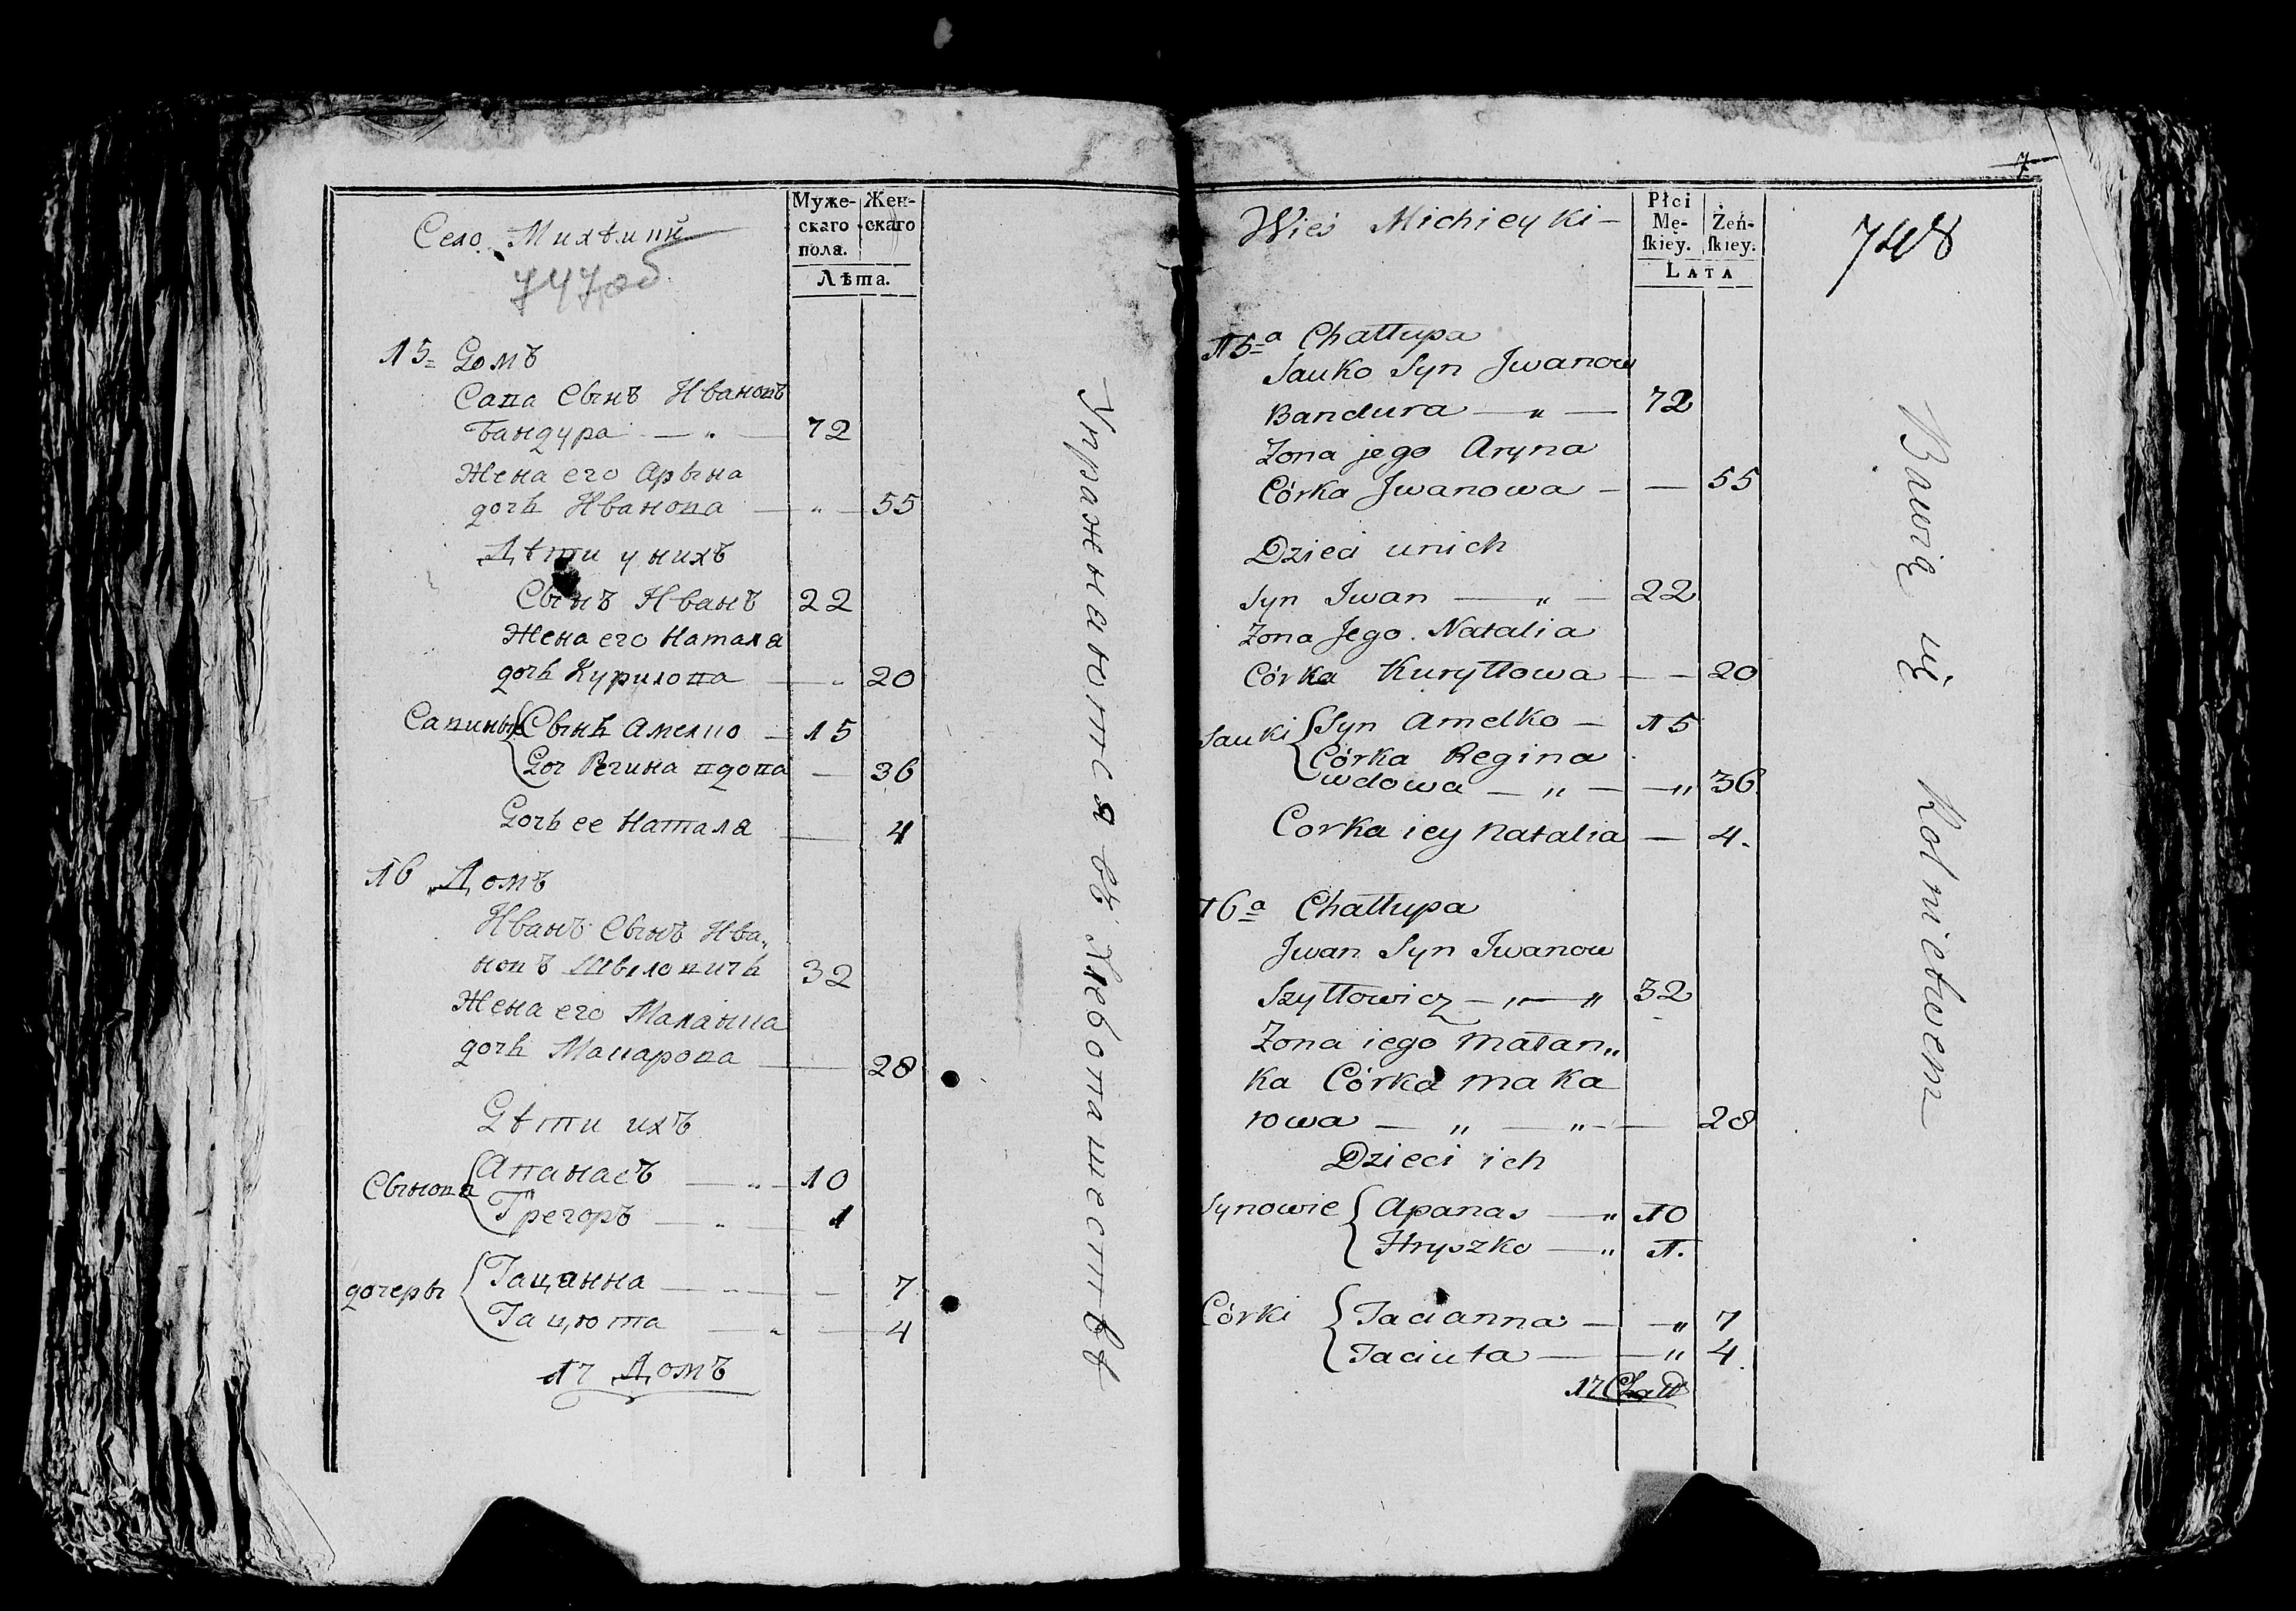 Село Михѣики
747об
Муже-
скаго
пола.
Жен-
скаго
Лѣта.
15= Домъ
Сава Сынъ Ивановъ
Бандура — „ — 72
Жена его Арына
дочь Иванова — „ — 55
Дѣти у нихъ
Сынъ Иванъ 22
Жена его Наталя
дочь Курилова — „ 20
Савины { Сынъ Амелко — 15
Доч Регина вдова — 36
Дочь ее Наталя — 4
16 Домъ
Иванъ Сынъ Ива„
новъ Шыловичь 32
Жена его Маланка
дочь Макарова — 28
Дѣти ихъ
Сынова { Апанасъ — „ — 10
Грегоръ — „ — 1
дочеры { Тацанна — „ — 7
Тацюта — „ — 4
17 Домъ
Упражнаются въ Хлебопашествѣ
7
Wieś Michieyki —
Płci
Mę-
ſkiey.
Żeń-
ſkiey.
LATA
748
15=a Chałłupa
Sauko Syn Jwanow
Bandura — „ — 72
Zona jego Aryna
Córka Jwanowa — — 55
Dzieci unich
Syn Iwan — „ — 22
Zona Jego Natalia
Córka Kuryłłowa — — 20
Sauki { Syn Amelko — 15
Córka Regina
wdowa — „ — — „ 36.
Corka iey Natalia — 4.
16a Chałłupa
Jwan Syn Iwanow
Szyłłowicz — „ — „ 32
Zona iego Małan„
ka Córka Maka
rowa — „ — „ — 28
Dzieci ich
Synowie { Apanas — „ 10
Hryszko — „ 1.
Córki { Tacianna — — „ 7
Taciuta — — „ 4.
17 Chałł
Bawią się Rolnictwem